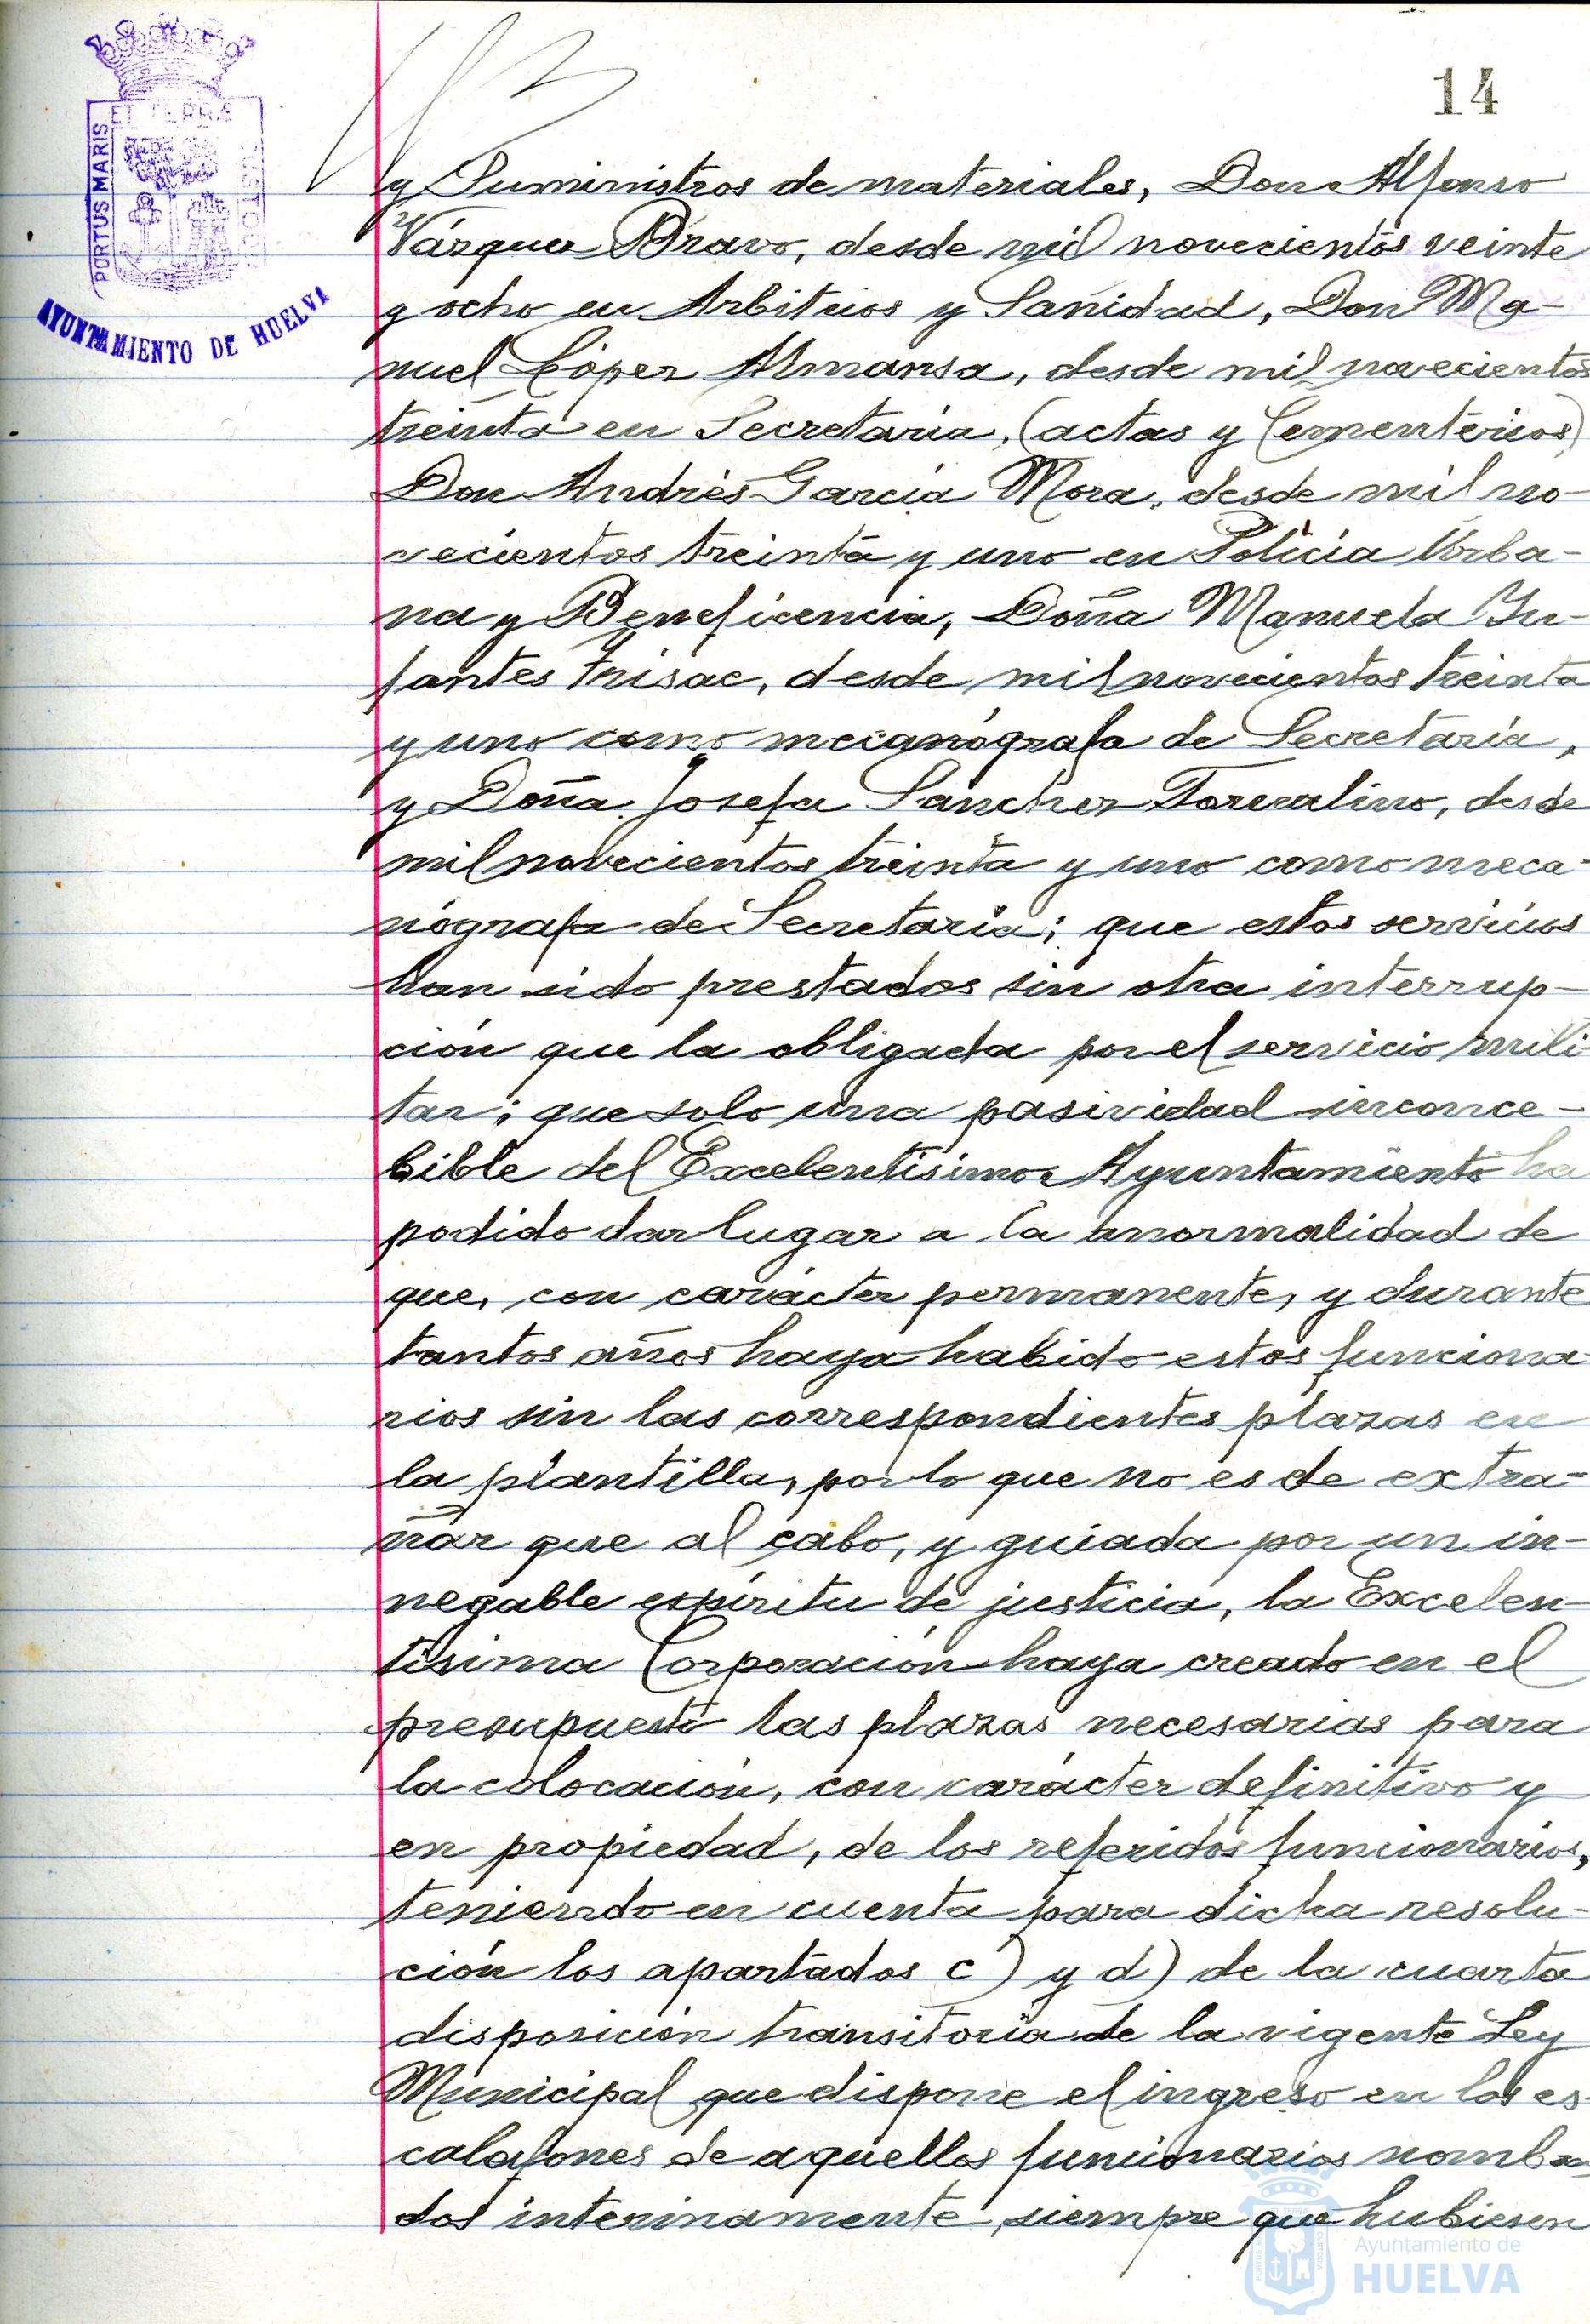 14
PORTUS MARIS
ET TERRÆ
CUSTODIA
AYUNTAMIENTO DE HUELVA
y Suministros de materiales, Don Alfonso
Vázquez Bravo, desde mil novecientos veinte
y ocho en Arbitrios y Sanidad, Don Ma-
nuel López Almansa, desde mil novecientos
treinta en Secretaria, (actas y Cementerios)
Don Andrés García Mora, desde mil no-
vecientos treinta y uno en Policía Urba-
na y Beneficencia, Doña Manuela In-
fantes Frisac, desde mil novecientos treinta
y uno como mecanógrafa de Secretaría,
y Doña Josefa Sánchez desde
mil novecientos treinta y uno como meca-
nógrafa de Secretaria; que estos servicios
han sido prestados sin otra interrup-
ción que la obligada por el servicio mili-
tar; que solo una pasividad inconce-
bible del Excelentísimo Ayuntamiento ha
podido dar lugar a la anormalidad de
que, con carácter permanente, y durante
tantos años haya habido estos funciona
rios sin las correspondientes plazas en
la plantilla, por lo que no es de extra-
ñar que al cabo, y guiada por un in-
negable espíritu de justicia, la Excelen-
tísima Corporación haya creado en el
presupuesto las plazas necesarias para
la colocación, con carácter definitivo y
en propiedad, de los referidos funcionarios,
teniendo en cuenta para dicha resolu-
ción los apartados c) y d) de la cuarta
disposición transitoria de la vigente Ley
Municipal que dispone el ingreso en los es-
calafones de aquellos funcionarios nombra
dos interinamente, siempre que hubiesen
Ayuntamiento de
HUELVA